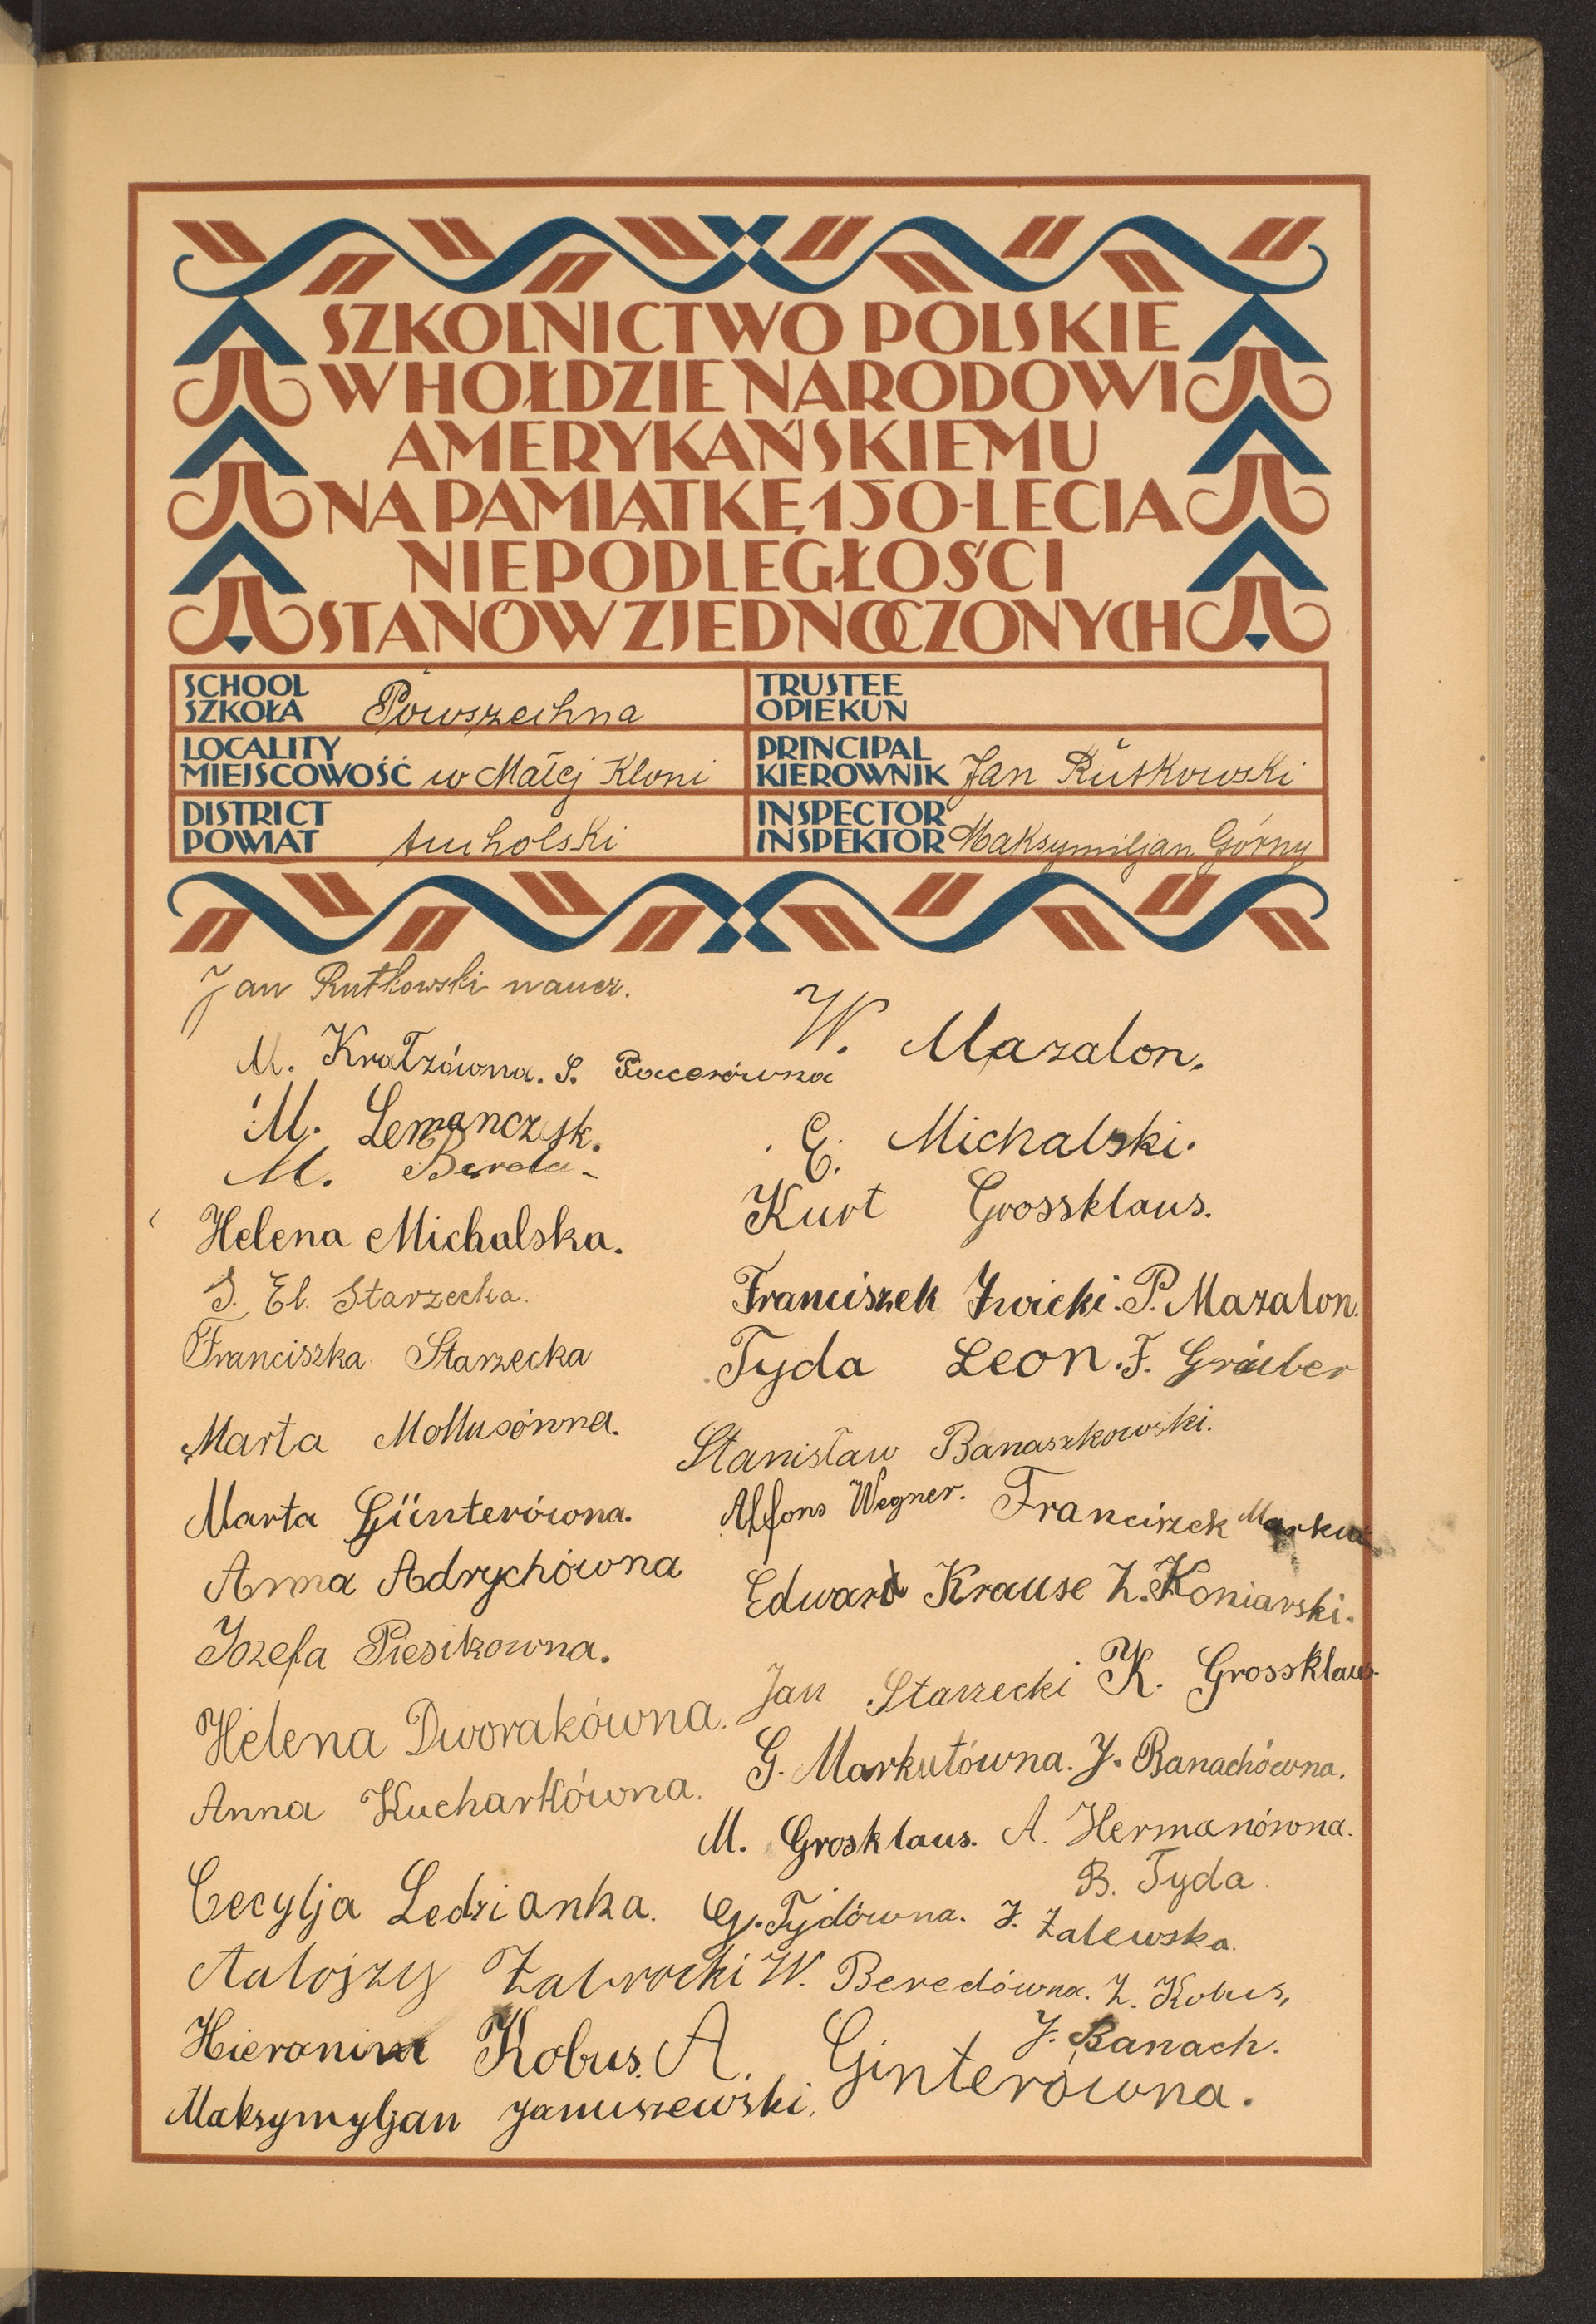 SZKOLNICTWO POLSKIE
W HOŁDZIE NARODOWI
AMERYKAŃSKIEMU
NA PAMIĄTKĘ 150-LECIA
NIEPODLEGŁOŚCI
STANÓW ZJEDNOCZONYCH
SCHOOL
SZKOŁA Powszechna
TRUSTEE
OPIEKUN
LOCALITY
MIEJSCOWOŚĆ w Małej Kloni
PRINCIPAL
KIEROWNIK Jan Rutkowski
DISTRICT
POWIAT tucholski
INSPECTOR
INSPEKTOR Maksymiljan Górny
Jan Rutkowski naucz.
M. Krałzówna. S.
M. Lemanczyk.
M. Bereda
Helena Michalska.
S. El. Starzecka.
Franciszka Starzecka
Marta
Marta Günterówna.
Anna Adrychówna
Jozefa Piesikowna.
Helena Dworakówna.
Anna Kucharkówna.
Cecylja Ledzianka.
Aalojzy Zabrocki
Hieronim Kobus.
Maksymyljan Januszewski.
W. Mazalon.
E. Michalski.
Kurt Grossklaus.
Franciszek Żwicki. P. Mazalon.
Tyda Leon. F. Gräuber
Stanisław Banaszkowski.
Alfons Wegner. Franciszek Markut
Edward Krause Z. Koniarski.
Jan Starzecki K. Grossklaus.
G. Markutówna. J. Banachówna.
M. Grosklaus. A. Hermanówna.
B. Tyda.
G. Tydówna. J. Zalewska.
W. Beredówna. Z. Kobus,
J. Banach.
A. Ginterówna.